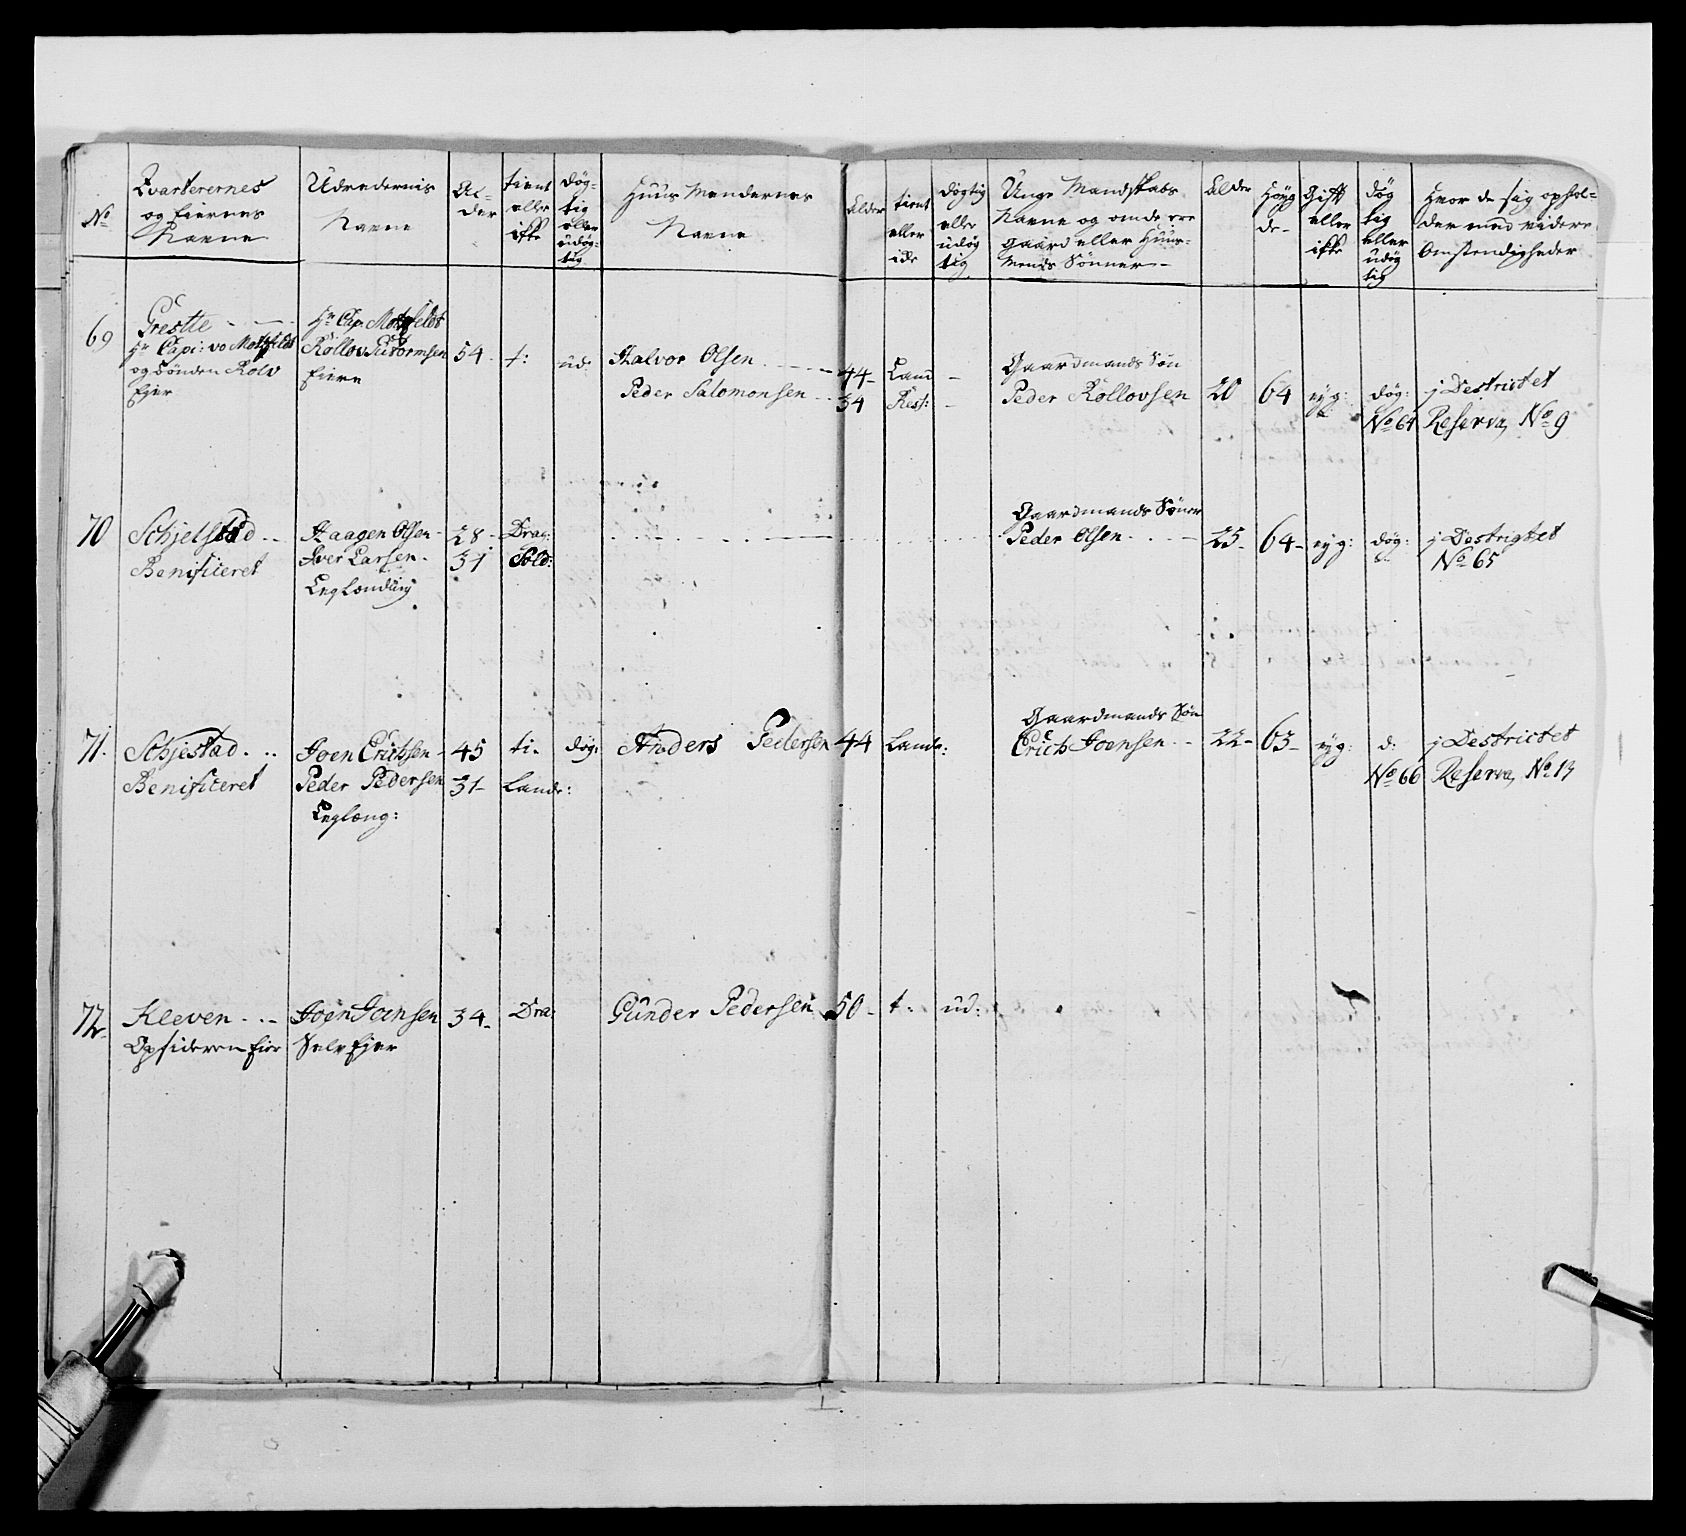 No
Qvarterernes
og Eiernes
Navne
Udredernis
Navne
Al-
der
tient
eller
ikke
døg-
tig
eller
udøg-
tig
Huus Mendernes
Navne
Alder
tient
eller
ide
døgtig
eller
udøg
tig
Unge Mandskabs
Navne og om de ere
gaard eller Huus-
mends Sønner
Alder
Høyg
de-
Gift
eller
ikke
døg
tig
eller
udøg
tig
Hvor de sig ophol-
der med videre
Omstendigheder
69
Grestte
Hr Capi: vo Motzfeldt
og Bonden Rolv
Ejer
Hr Cap. Motzfeldt
Rollov Guttormsen
Eiere
54 t: ud:
Halvor Olsen
Peder Salomonsen
44 Land
34 Ress:
Gaardmands Søn
Peder Rollovsen 20 64 eyg: døg: j Destrictet
No 64 Reserve No 9
70
Schjelstad
Benificeret
Haagen Olsen 28 Drag:
Iver Larsen 31 Sold:
Leglænding
Gaardmands Sønner
Peder Olsen 25 64 eyg: døg: j Destrigtet
No 65
71.
Schjestad
Benificeret
Joen Erichsen 45 ti. døg:
Peder Pedersen 31 Lands:
Leglæng:
Anders Pedersen 44 Lands:
Gaardmands Søn
Erich Joensen 22 63 eyg: d: j Destrictet
No 66 Reserve, No 13
72
Kleven
Opsideren Eier
Joen Joensen 34 Dra:
Selv Ejer
Gunder Pedersen 50 t: ud: